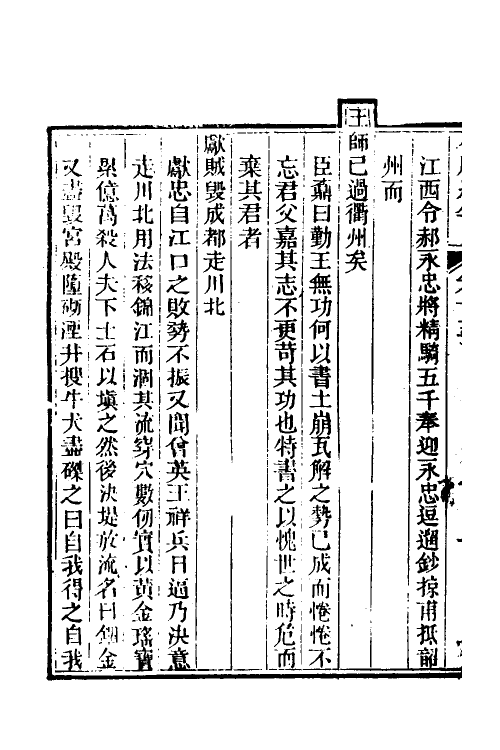 江西令郝永忠將精騎五千奉迎永忠逗遛鈔掠甫抵韶
州而
王師已過衢州矣
臣鼒曰勤王無功何以書土崩瓦解之勢已成而惓惓不
忘君父嘉其志不更苛其功也特書之以愧世之時危而
棄其君者
獻賊毀成都走川北
獻忠自江口之敗勢不振又聞曾英王祥兵日逼乃決意
走川北用法移錦江而涸其流穿穴數仞實以黃金瑤寶
累億萬殺人夫下土石以塡之然後決堤放流名曰錮金
又盡毀宮殿墮砌湮井搜牛犬盡磔之曰自我得之自我